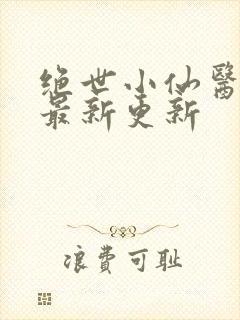 绝世小仙醫
最新更新
浪費可耻